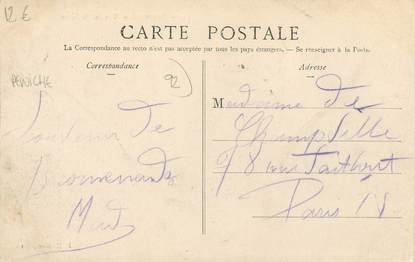 12 €
CARTE POSTALE
La Correspondance au recto n'est pas acceptée par tous les pays étrangers. — Se renseigner à la Poste.
Correspondance
Adresse
PENICHE
92
Souvenir de
Madame de
78 rue Taitbout
Paris